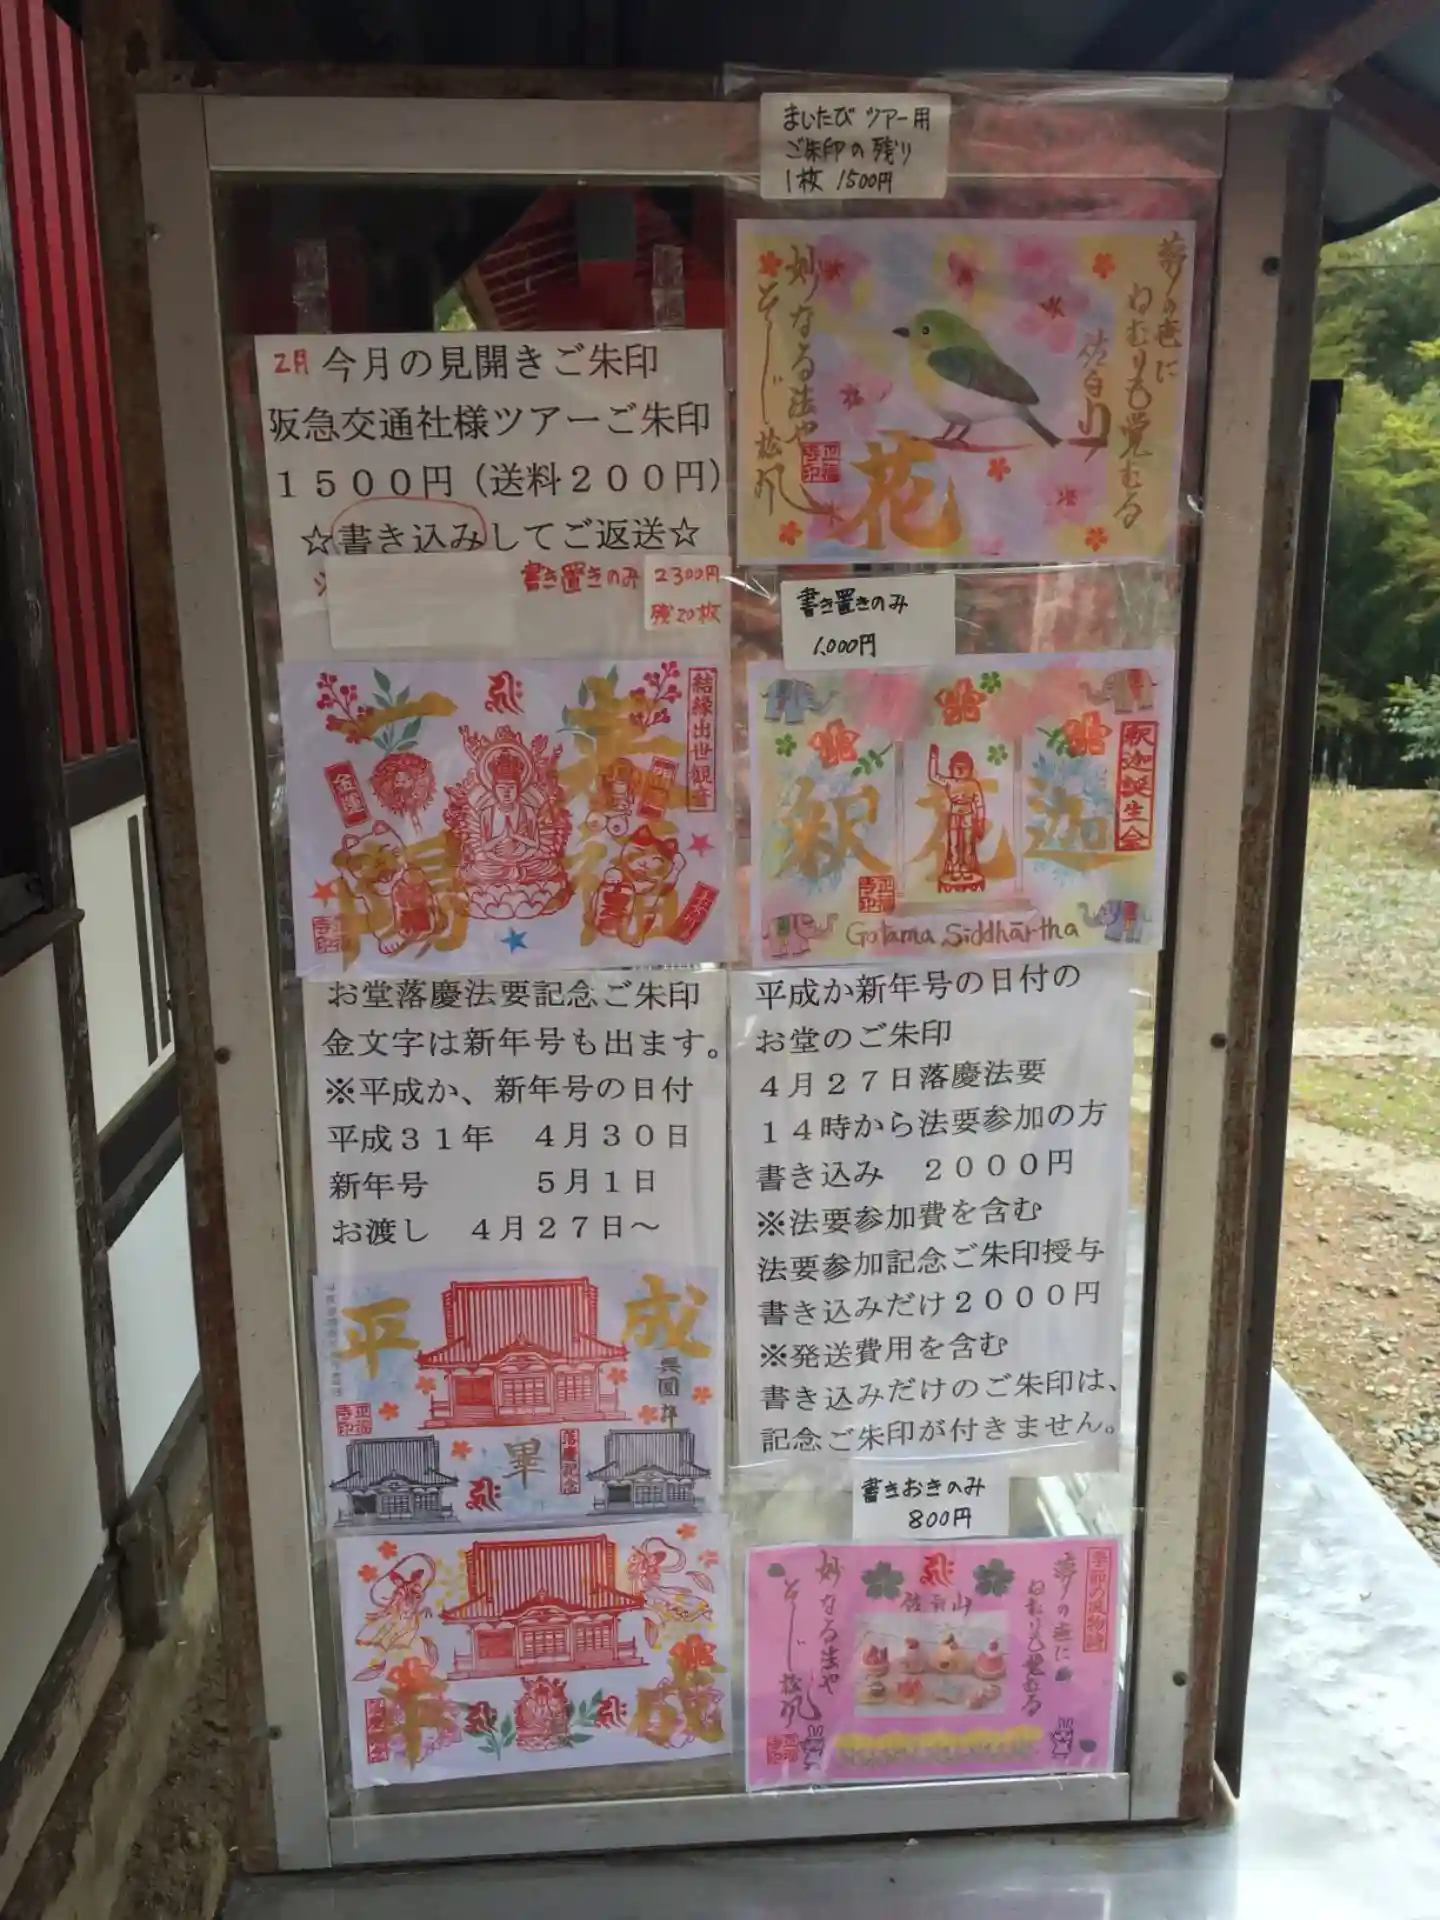 まいたび ツアー用
ご朱印の残り
1枚 1500円
夢の世に
ねむりも覚むる
佐白山
妙なる法や
そーじ松風
花
正福
寺印
2月 今月の見開きご朱印
阪急交通社様ツアーご朱印
1500円（送料200円）
☆書き込みしてご返送☆
書き置きのみ 2300円
残20枚
結縁出世観音
金運
一
鶴
来
福
正福
寺印
書き置きのみ
1,000円
釈迦誕生会
釈
花
迦
正福
寺印
Gotama Siddhārtha
お堂落慶法要記念ご朱印
金文字は新年号も出ます。
※平成か、新年号の日付
平成31年 4月30日
新年号 5月1日
お渡し 4月27日～
平成
正福
寺印
畢
落慶記念
平成
平成か新年号の日付の
お堂のご朱印
4月27日落慶法要
14時から法要参加の方
書き込み 2000円
※法要参加費を含む
法要参加記念ご朱印授与
書き込みだけ2000円
※発送費用を含む
書き込みだけのご朱印は、
記念ご朱印が付きません。
書きおきのみ
800円
季節の風物詩
夢の世に
ねむりも覚むる
佐白山
妙なる法や
そーじ松風